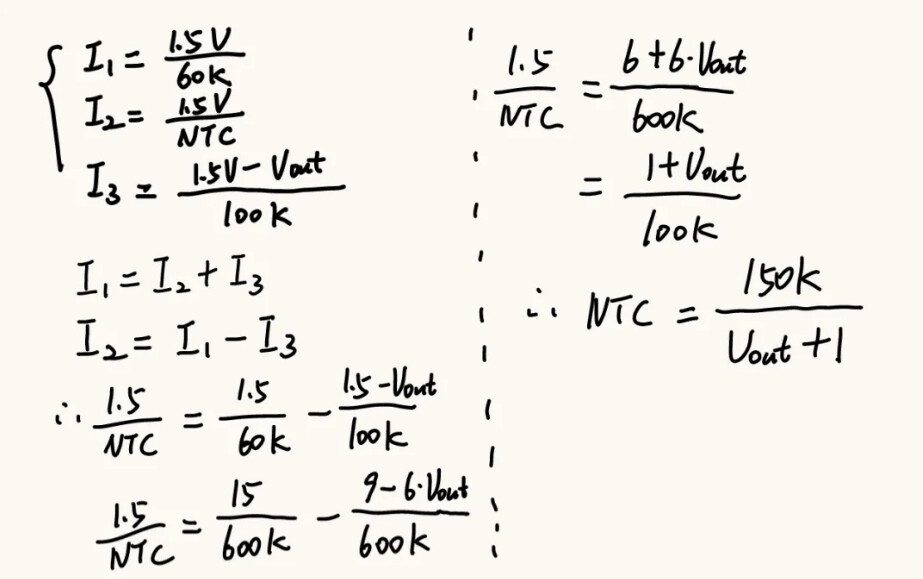 I₁ = 1.5V / 60k
I₂ = 1.5V / NTC
I₃ = (1.5V - Vout) / 100k
I₁ = I₂ + I₃
I₂ = I₁ - I₃
∴ 1.5 / NTC = 1.5 / 60k - (1.5 - Vout) / 100k
1.5 / NTC = 15 / 600k - (9 - 6·Vout) / 600k
1.5 / NTC = (6 + 6·Vout) / 600k
= (1 + Vout) / 100k
∴ NTC = 150k / (Vout + 1)